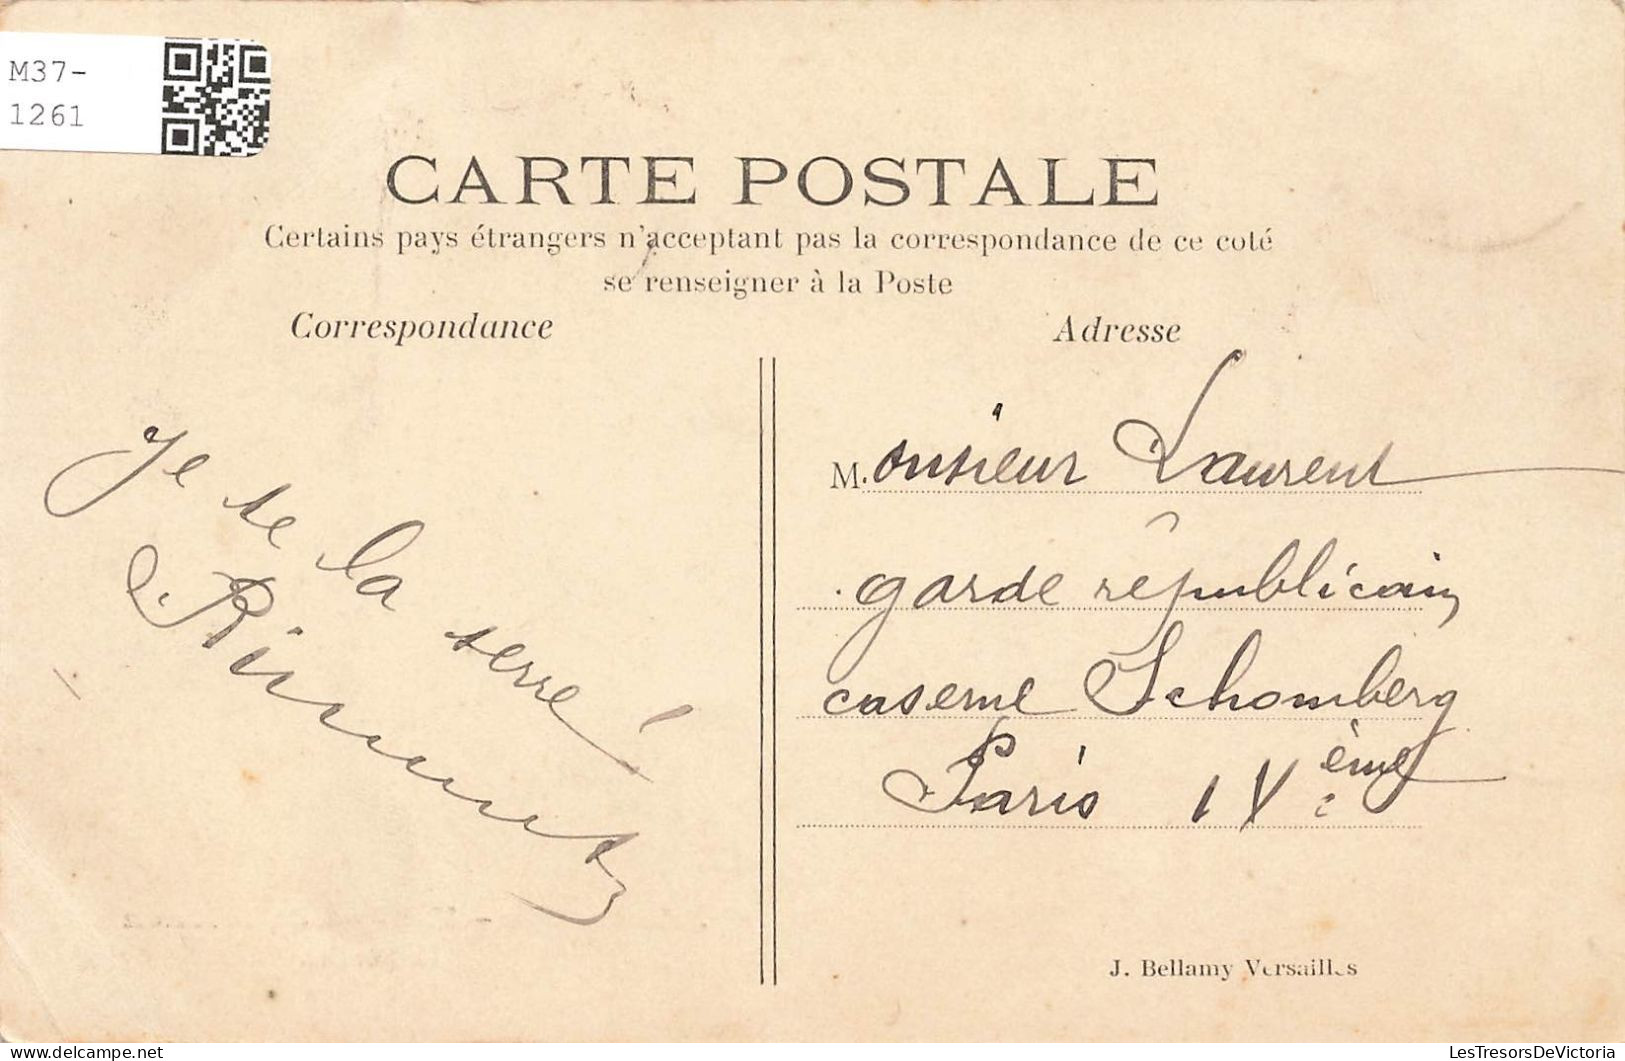 M37-
1261
CARTE POSTALE
Certains pays étrangers n'acceptant pas la correspondance de ce coté
se renseigner à la Poste
Correspondance
Adresse
Je te la serre!
Monsieur Laurent
garde républicain
caserne Schomberg
Paris IVème
J. Bellamy Versailles
LesTresorsDeVictoria
delcampe.net